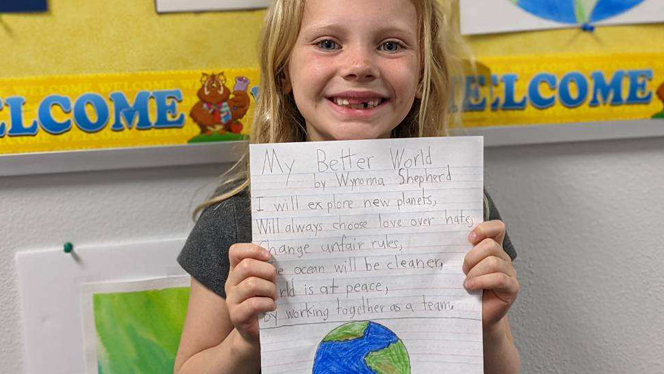 WELCOME
WELCOME WELCOME WELC
ELCOME
WELCOME
My Better World
by Wynonna Shepherd
I will explore new planets,
Will always choose love over hate,
Change unfair rules,
ocean will be cleaner,
is at peace,
By working together as a team.